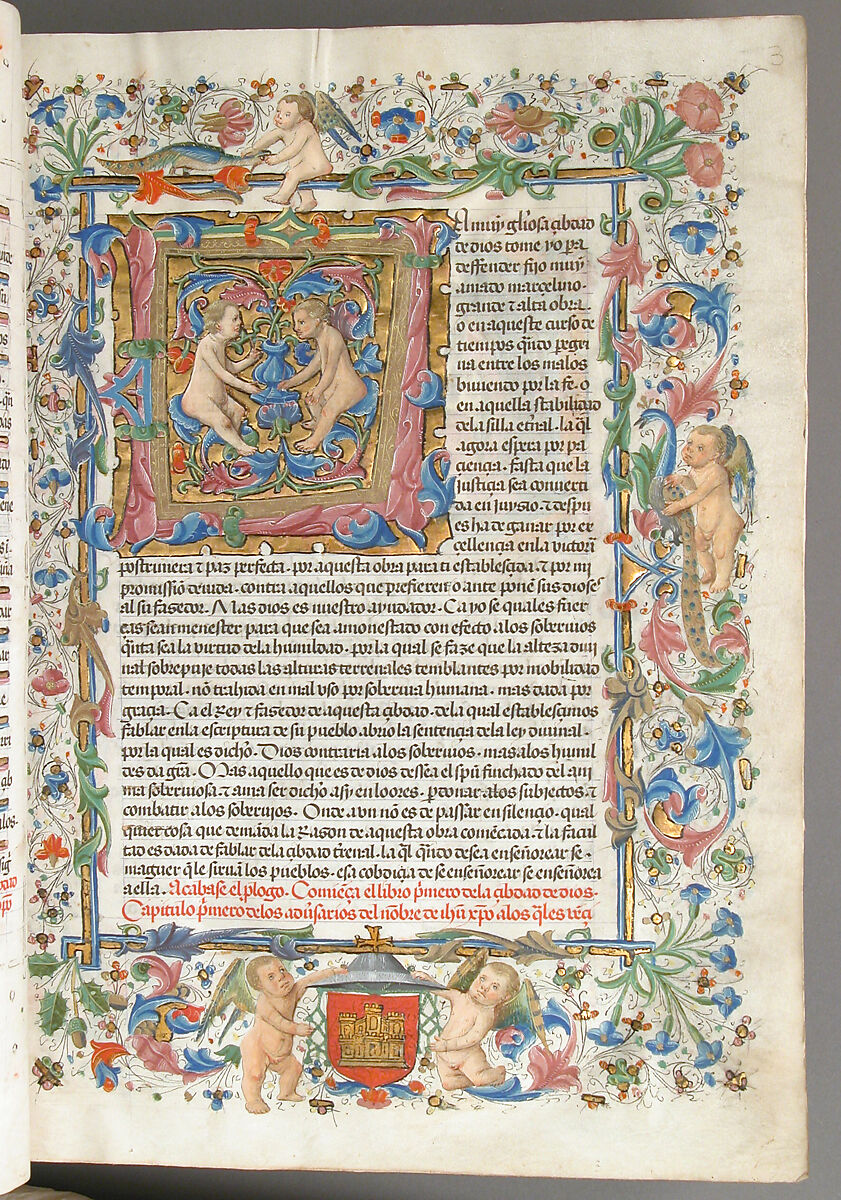 A muy gl'iosa çibdad
de dios tome yo pa
deffender fijo muy
amado marcelino·
grande τ alta obra·
o en aqueste curso de
tiempos qñdo pegri
na entre los malos
biuiendo por la fe· o
en aquella stabilidad
dela silla et'nal· la q̃l
agora espera por pa
çiençia· fasta que la
justiçia sea conuerti
da en juysio· τ despu
es ha de ganar por ex
çellençia enla victoria
postrimera τ paz perfecta· por aquesta obra para ti establesçida· τ por mi
promission deuida· contra aquellos que prefieren o ante ponẽ sus dioses
al su fasedor· Mas dios es nuestro ayudador· Ca yo se quales fuer
ças sean menester para que sea amonestado con efecto alos soberuios
qñta sea la virtud dela humildad· por la qual se faze que la alteza diui
nal sobrepuje todas las alturas terrenales temblantes por mobilidad
temporal· nõ trahida en mal vso por soberuia humana· mas dada por
graçia· Ca el Rey τ fasedor de aquesta çibdad· dela qual establesçimos
fablar enla escriptura de su pueblo abrio la sentençia dela ley diuinal·
por la qual es dicho· Dios contraria alos soberuios· mas alos humil
des da grã· Mas aquello que es de dios dessea el spũ finchado del ani
ma soberuiosa τ ama ser dicho assy en loores· perdonar alos subiectos· τ
combatir alos soberuios· Onde avn nõ es de passar en silençio· qual
quier cosa que demãda la Rason de aquesta obra comẽçada· τ la facul
tad es dada de fablar dela çibdad t'renal· la q̃l qñdo desea enseñorear se·
maguer q̃ le siruã los pueblos· esa cobdiçia de se enseñorear se enseñorea
a ella· Acabase el plogo· Comiẽça el libro p'mero dela çibdad de dios·
Capitulo p'mero delos adu'sarios del nõbre de ihũ xp̃o alos q̃les
3